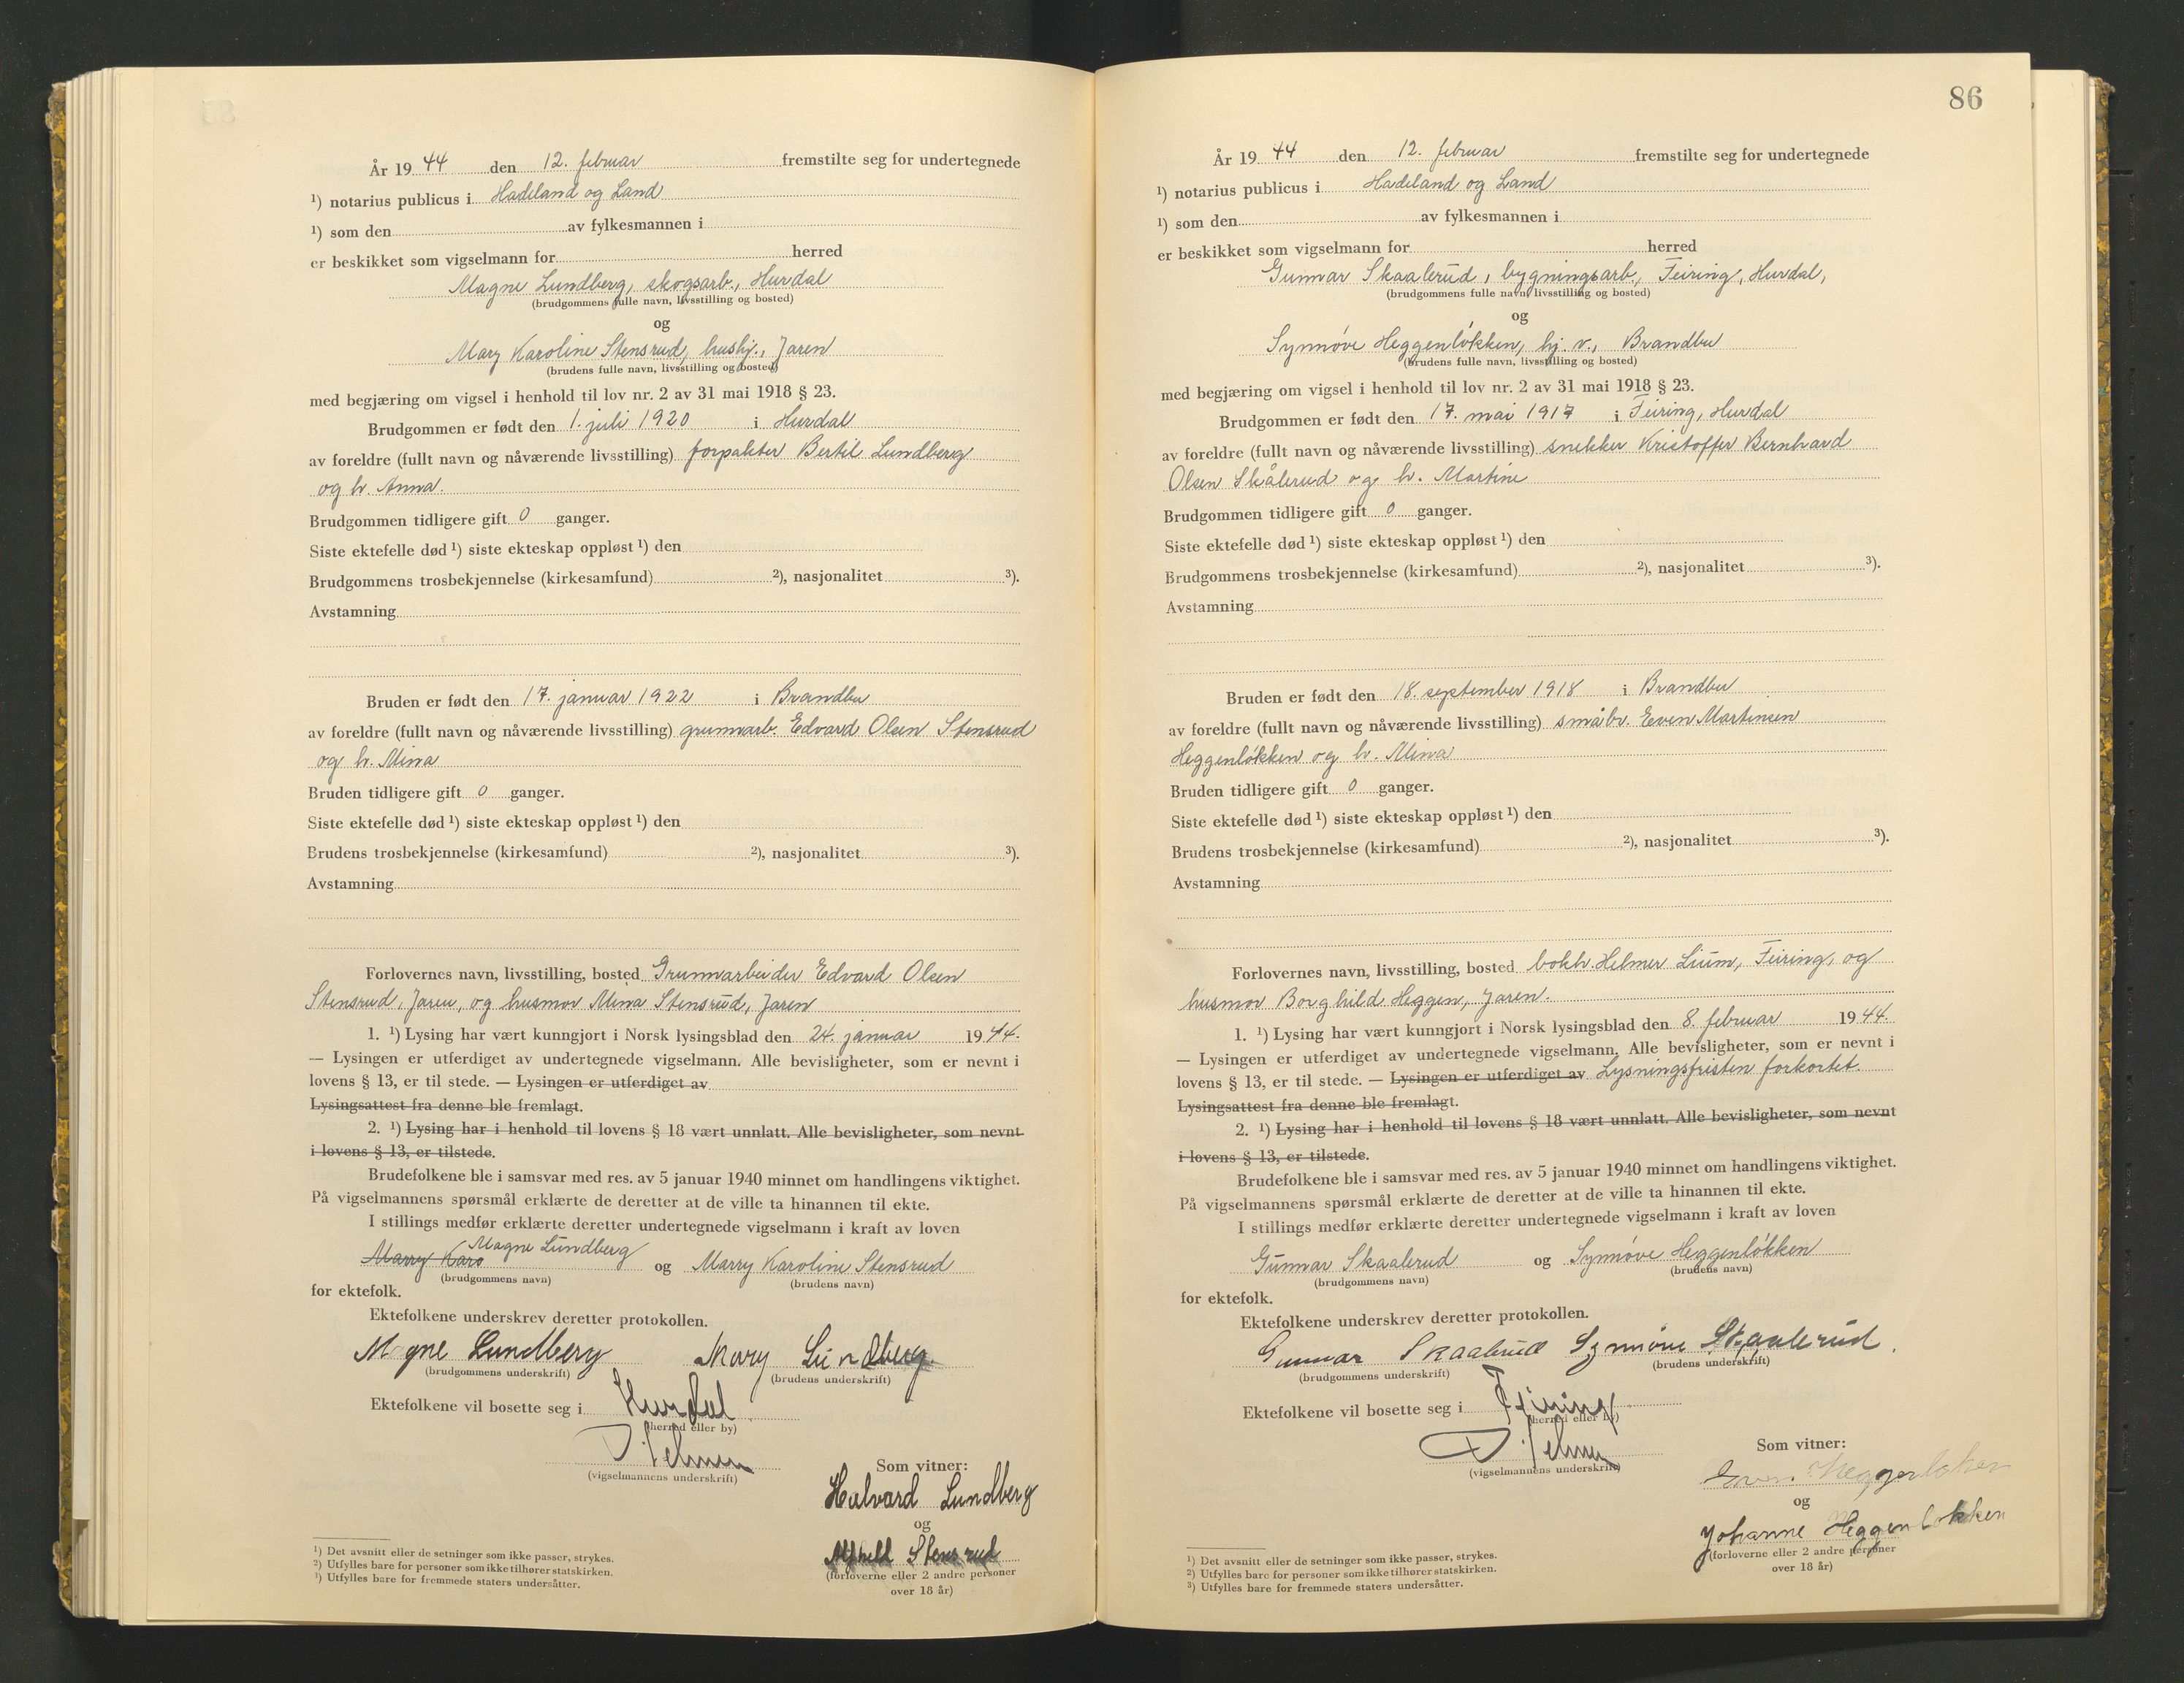 År 1944 den 12. februar fremstilte seg for undertegnede
¹) notarius publicus i Hadeland og Land
¹) som den av fylkesmannen i
er beskikket som vigselmann for herred
Magne Lundberg, skogsarb., Hurdal
(brudgommens fulle navn, livsstilling og bosted)
og
Mary Karoline Stensrud, hushj., Jaren
(brudens fulle navn, livsstilling og bosted)
med begjæring om vigsel i henhold til lov nr. 2 av 31 mai 1918 § 23.
Brudgommen er født den 1. juli 1920 i Hurdal
av foreldre (fullt navn og nåværende livsstilling) forpakter Bertil Lundberg
og h. Anna.
Brudgommen tidligere gift 0 ganger.
Siste ektefelle død ¹) siste ekteskap oppløst ¹) den
Brudgommens trosbekjennelse (kirkesamfund) ²), nasjonalitet ³).
Avstamning
Bruden er født den 17. januar 1922 i Brandbu
av foreldre (fullt navn og nåværende livsstilling) grunnarb. Edvard Olsen Stensrud
og h. Mina
Bruden tidligere gift 0 ganger.
Siste ektefelle død ¹) siste ekteskap oppløst ¹) den
Brudens trosbekjennelse (kirkesamfund) ²), nasjonalitet ³).
Avstamning
Forlovernes navn, livsstilling, bosted Grunnarbeider Edvard Olsen
Stensrud, Jaren, og husmor Mina Stensrud, Jaren
1. ¹) Lysing har vært kunngjort i Norsk lysingsblad den 24. januar 1944.
— Lysingen er utferdiget av undertegnede vigselmann. Alle bevisligheter, som er nevnt i
lovens § 13, er til stede. — Lysingen er utferdiget av
Lysingsattest fra denne ble fremlagt.
2. ¹) Lysing har i henhold til lovens § 18 vært unnlatt. Alle bevisligheter, som nevnt
i lovens § 13, er tilstede.
Brudefolkene ble i samsvar med res. av 5 januar 1940 minnet om handlingens viktighet.
På vigselmannens spørsmål erklærte de deretter at de ville ta hinannen til ekte.
I stillings medfør erklærte deretter undertegnede vigselmann i kraft av loven
Marry Karo Magne Lundberg og Marry Karoline Stensrud
(brudgommens navn) (brudens navn)
for ektefolk.
Ektefolkene underskrev deretter protokollen.
Magne Lundberg Mary Lundberg.
(brudgommens underskrift) (brudens underskrift)
Ektefolkene vil bosette seg i Hurdal
(herred eller by)
(vigselmannens underskrift)
Som vitner:
Halvard Lundberg
og
Stensrud
(forloverne eller 2 andre personer
over 18 år)
¹) Det avsnitt eller de setninger som ikke passer, strykes.
²) Utfylles bare for personer som ikke tilhører statskirken.
³) Utfylles bare for fremmede staters undersåtter.
86
År 1944 den 12. februar fremstilte seg for undertegnede
¹) notarius publicus i Hadeland og Land
¹) som den av fylkesmannen i
er beskikket som vigselmann for herred
Gunnar Skaalerud, bygningsarb., Feiring, Hurdal,
(brudgommens fulle navn, livsstilling og bosted)
og
Synnöve Heggenlökken, hj. v., Brandbu
(brudens fulle navn, livsstilling og bosted)
med begjæring om vigsel i henhold til lov nr. 2 av 31 mai 1918 § 23.
Brudgommen er født den 17. mai 1917 i Feiring, Hurdal
av foreldre (fullt navn og nåværende livsstilling) snekker Kristoffer Bernhard
Olsen Skålerud og h. Martine
Brudgommen tidligere gift 0 ganger.
Siste ektefelle død ¹) siste ekteskap oppløst ¹) den
Brudgommens trosbekjennelse (kirkesamfund) ²), nasjonalitet ³).
Avstamning
Bruden er født den 18. september 1918 i Brandbu
av foreldre (fullt navn og nåværende livsstilling) småbr. Even Martinsen
Heggenlökken og h. Mina
Bruden tidligere gift 0 ganger.
Siste ektefelle død ¹) siste ekteskap oppløst ¹) den
Brudens trosbekjennelse (kirkesamfund) ²), nasjonalitet ³).
Avstamning
Forlovernes navn, livsstilling, bosted bokh. Helmer Lium, Feiring, og
husmor Borghild Heggen, Jaren.
1. ¹) Lysing har vært kunngjort i Norsk lysingsblad den 8. februar 1944.
— Lysingen er utferdiget av undertegnede vigselmann. Alle bevisligheter, som er nevnt i
lovens § 13, er til stede. — Lysingen er utferdiget av Lysningsfristen forkortet.
Lysingsattest fra denne ble fremlagt.
2. ¹) Lysing har i henhold til lovens § 18 vært unnlatt. Alle bevisligheter, som nevnt
i lovens § 13, er tilstede.
Brudefolkene ble i samsvar med res. av 5 januar 1940 minnet om handlingens viktighet.
På vigselmannens spørsmål erklærte de deretter at de ville ta hinannen til ekte.
I stillings medfør erklærte deretter undertegnede vigselmann i kraft av loven
Gunnar Skaalerud og Synnöve Heggenlökken
(brudgommens navn) (brudens navn)
for ektefolk.
Ektefolkene underskrev deretter protokollen.
Gunnar Skaalerud Synnöve Skaalerud.
(brudgommens underskrift) (brudens underskrift)
Ektefolkene vil bosette seg i Feiring
(herred eller by)
(vigselmannens underskrift)
Som vitner:
Even Heggenlökken
og
Johanne Heggenlokken
(forloverne eller 2 andre personer
over 18 år)
¹) Det avsnitt eller de setninger som ikke passer, strykes.
²) Utfylles bare for personer som ikke tilhører statskirken.
³) Utfylles bare for fremmede staters undersåtter.